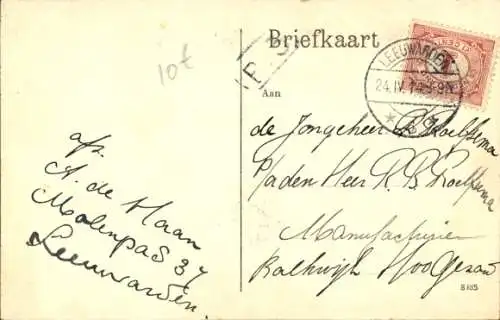 10€
Briefkaart
P
LEEUWARDEN
24.IV.1
8-9N
Aan
de Jongeheer R Roelfsema
p/a den Heer R. B. Roelfsema
Manufacturier
Kalkwijk Hoogezand
afz.
A. de Haan
Molenpad 37
Leeuwarden.